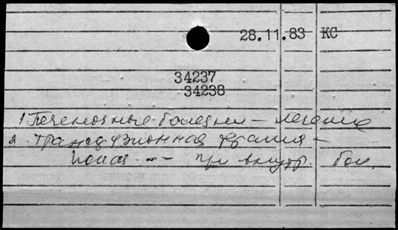 28.11.83 КС
34237
34238
1 Печеночные болезни – лечение
2. Трансфузионная терапия –
показ. -- при внутр. бол.